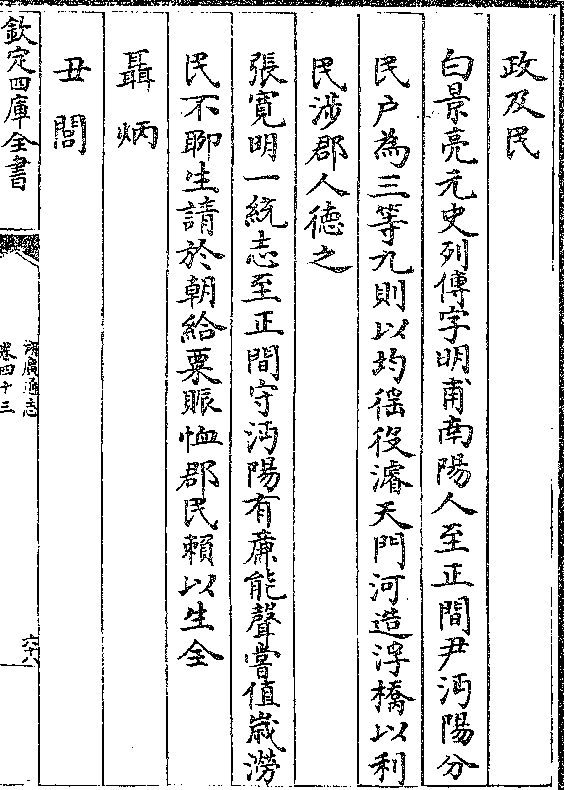 政及民
白景亮元史列傳字明甫南陽人至正間尹沔陽分
民户為三等九則以均徭役濬天門河造浮橋以利
民涉郡人德之
張寛明一統志至正間守沔陽有廉能聲嘗值歳澇
民不聊生請於朝給粟賑恤郡民賴以生全
聶炳
丑閭
欽定四庫全書
湖廣通志
卷四十三
六十八